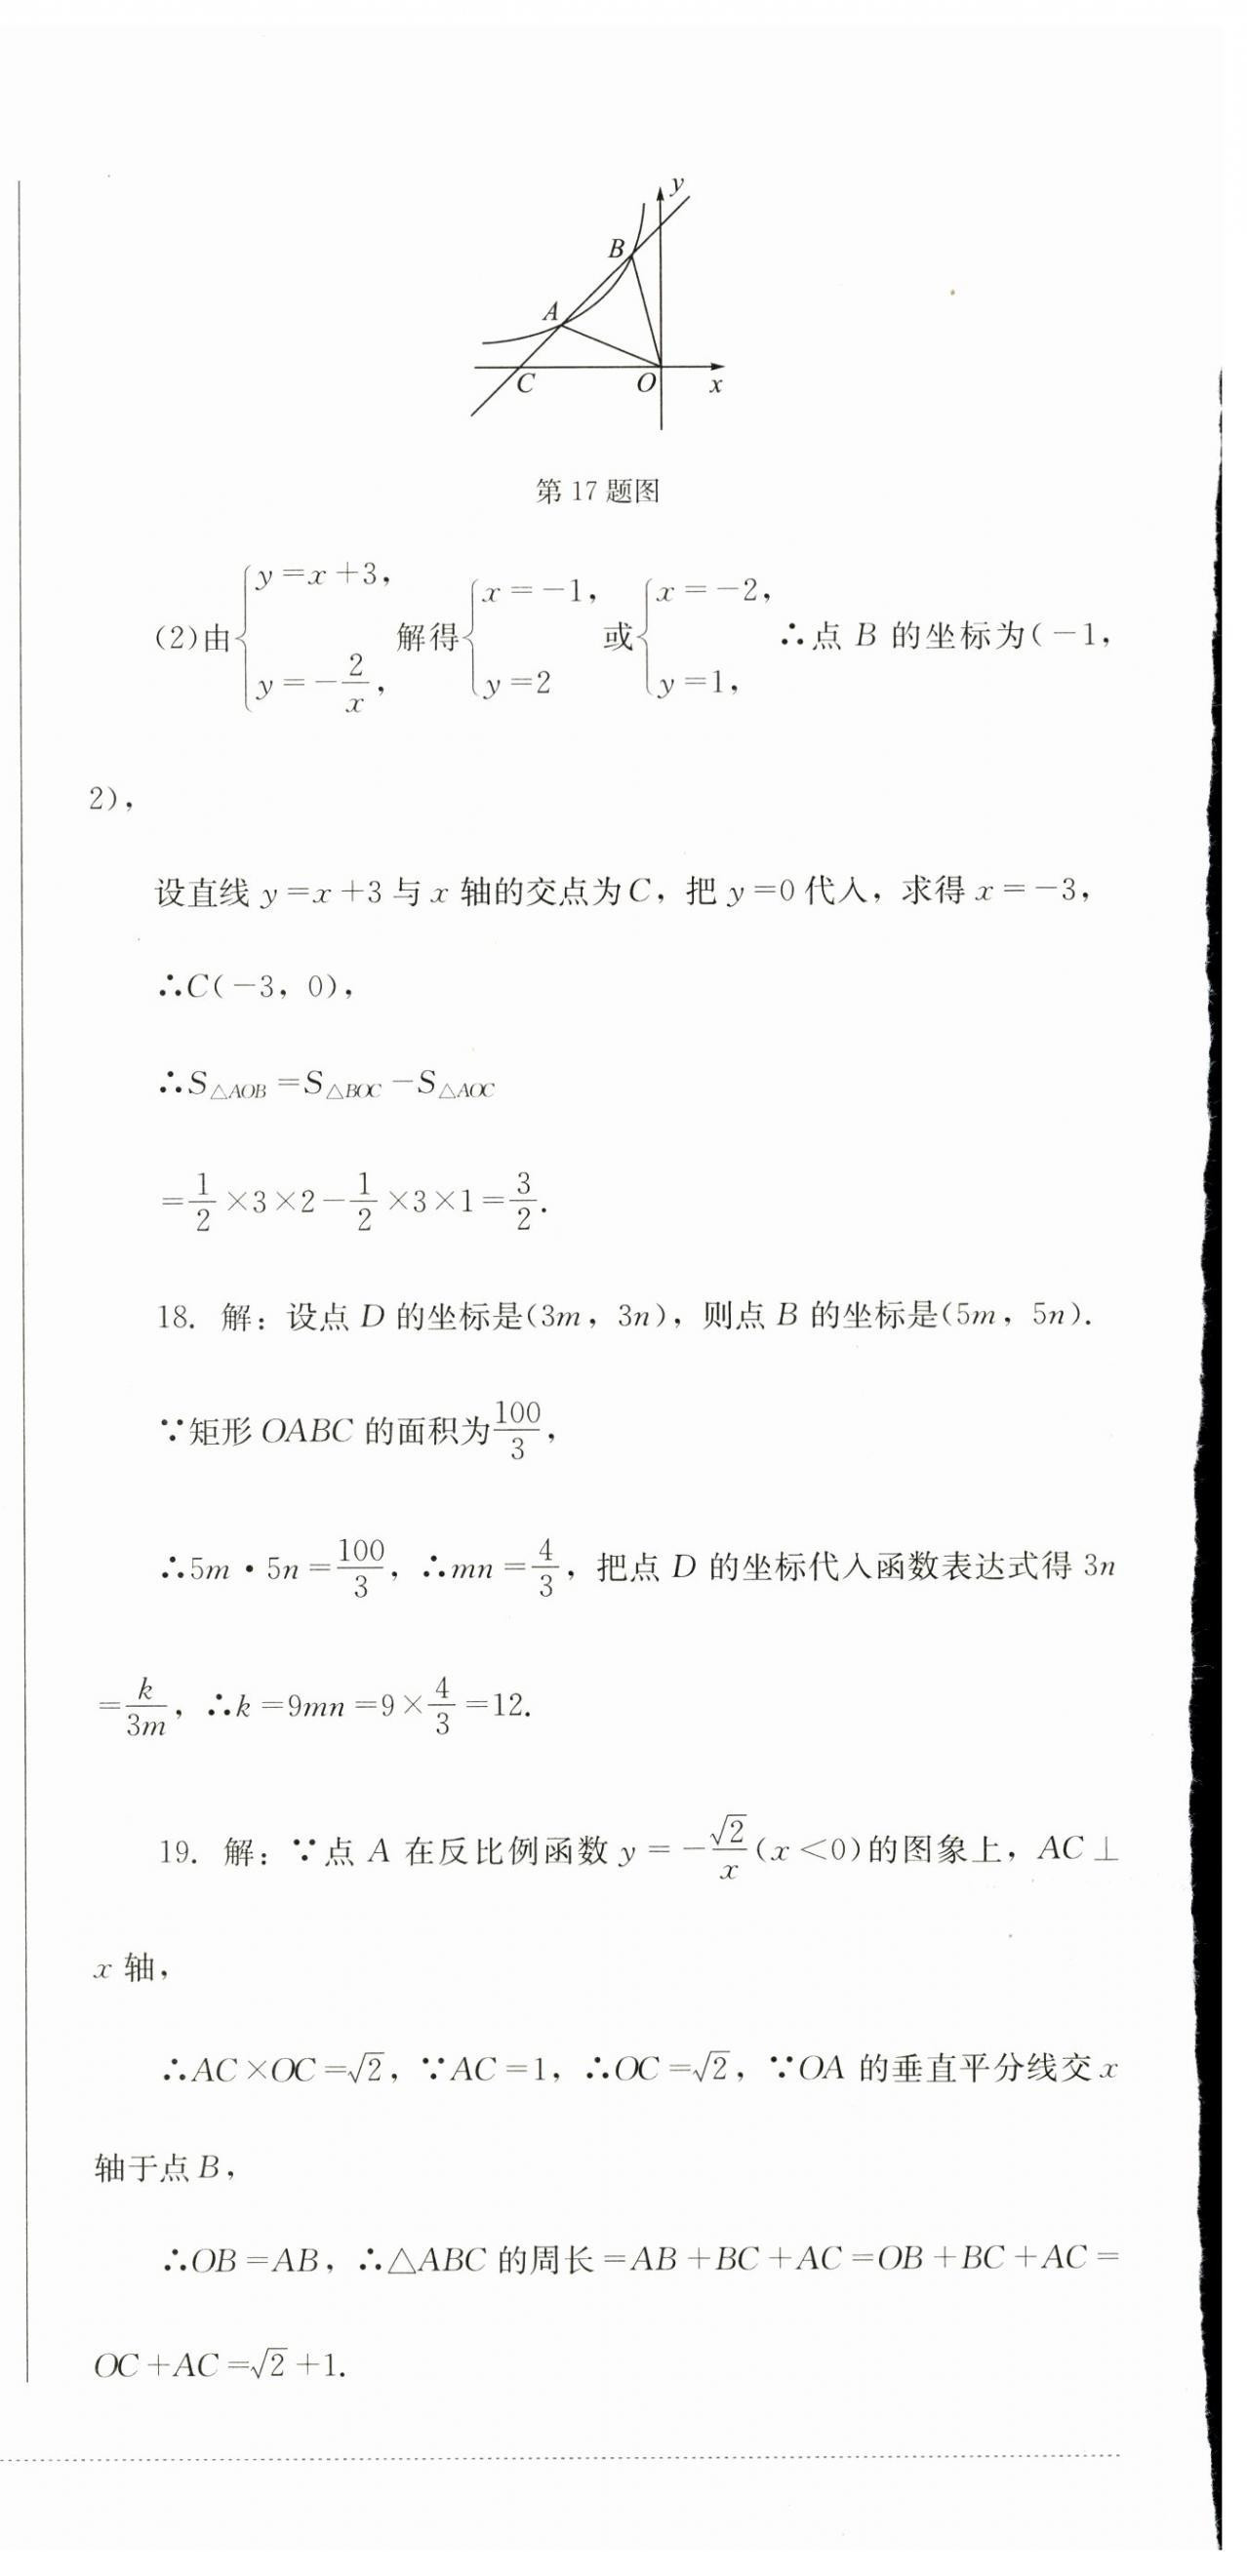 y
B
A
C O x
第 17 题图
(2)由{y=x+3, y=-2/x, 解得{x=-1, y=2 或{x=-2, y=1, ∴点 B 的坐标为(-1,
2),
设直线 y=x+3 与 x 轴的交点为C, 把 y=0 代入, 求得 x=-3,
∴C(-3, 0),
∴S△AOB=S△BOC-S△AOC
=1/2×3×2-1/2×3×1=3/2.
18. 解: 设点 D 的坐标是(3m, 3n), 则点 B 的坐标是(5m, 5n).
∵矩形 OABC 的面积为100/3,
∴5m·5n=100/3, ∴mn=4/3, 把点 D 的坐标代入函数表达式得 3n
=k/3m, ∴k=9mn=9×4/3=12.
19. 解: ∵点 A 在反比例函数 y=-√2/x(x<0)的图象上, AC⊥
x 轴,
∴AC×OC=√2, ∵AC=1, ∴OC=√2, ∵OA 的垂直平分线交 x
轴于点 B,
∴OB=AB, ∴△ABC 的周长=AB+BC+AC=OB+BC+AC=
OC+AC=√2+1.